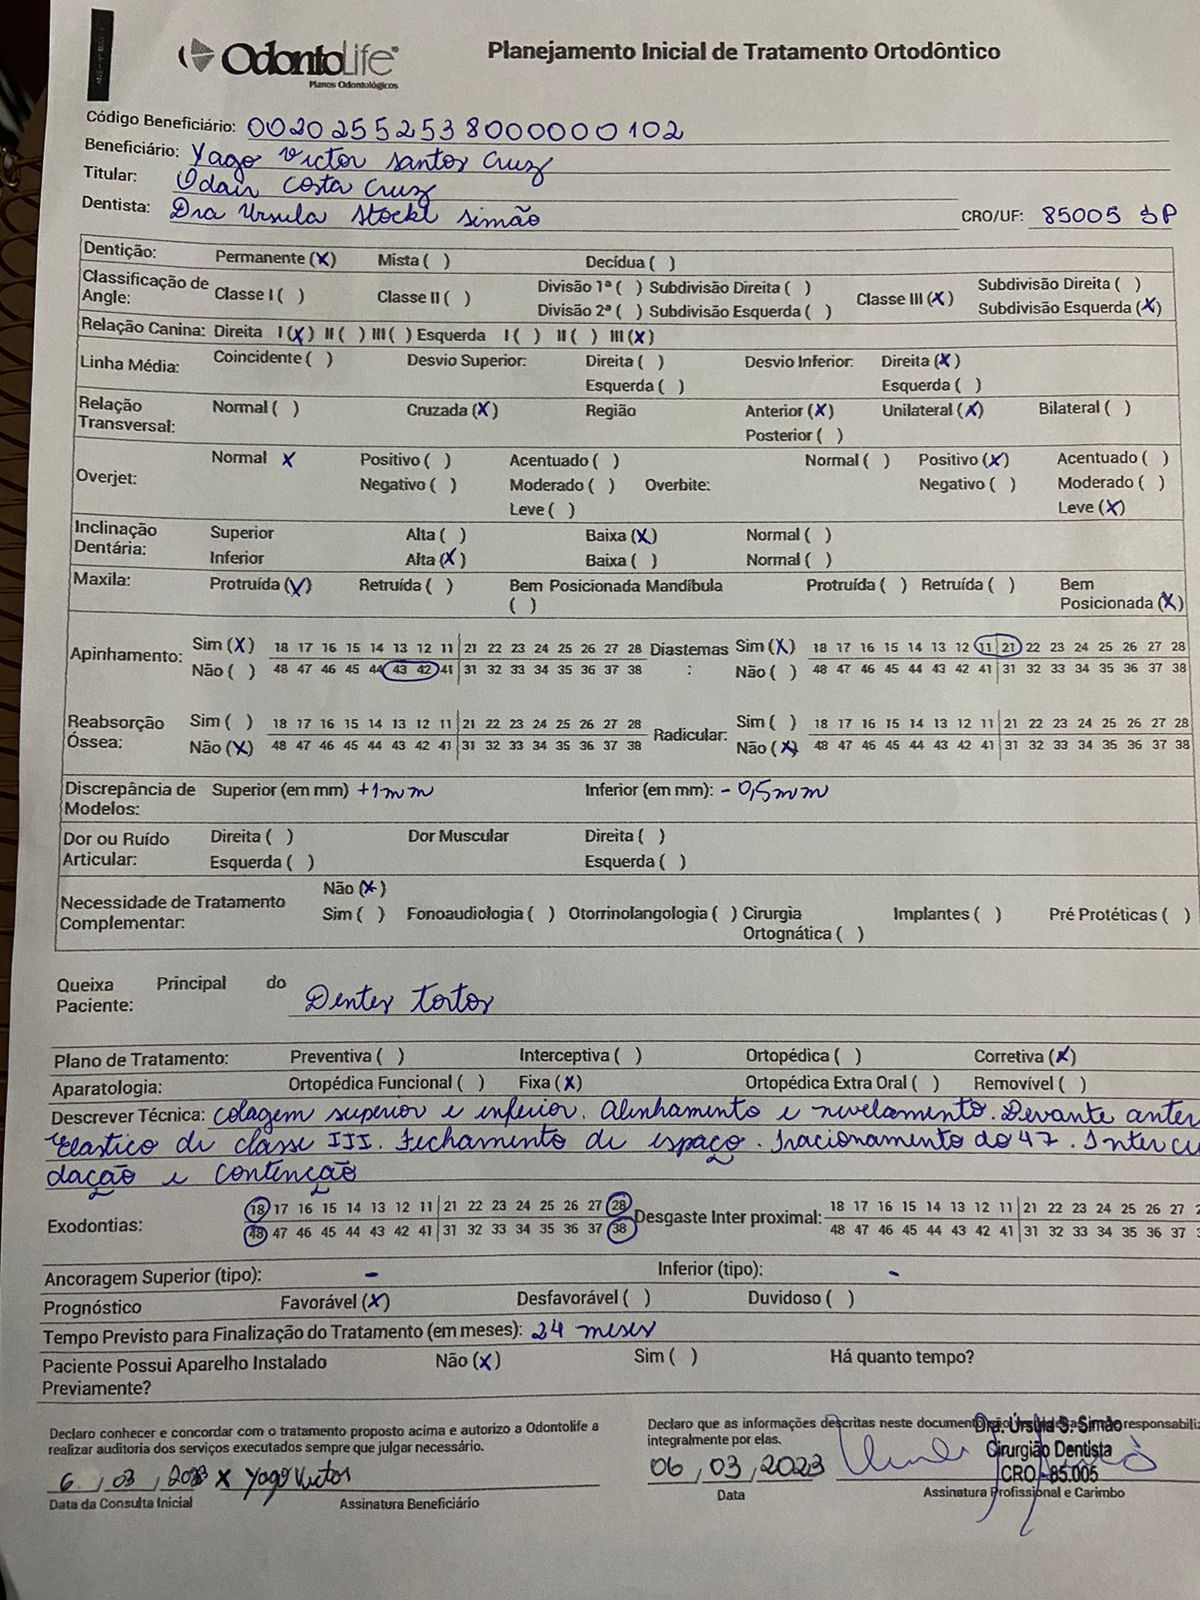 OdontoLife
Planos Odontológicos
Planejamento Inicial de Tratamento Ortodôntico
Código Beneficiário: 00202552538000000102
Beneficiário: Yago Victor Santos Cruz
Titular: Odair Costa Cruz
Dentista: Dra Ursula Stockl Simão CRO/UF: 85005 SP
Dentição: Permanente (X) Mista ( ) Decídua ( )
Classificação de Angle: Classe I ( ) Classe II ( ) Divisão 1ª ( ) Subdivisão Direita ( ) Classe III (X) Subdivisão Direita ( )
Divisão 2ª ( ) Subdivisão Esquerda ( ) Subdivisão Esquerda (X)
Relação Canina: Direita I (X) II ( ) III ( ) Esquerda I ( ) II ( ) III (X)
Linha Média: Coincidente ( ) Desvio Superior: Direita ( ) Desvio Inferior: Direita (X)
Esquerda ( ) Esquerda ( )
Relação Transversal: Normal ( ) Cruzada (X) Região Anterior (X) Unilateral (X) Bilateral ( )
Posterior ( )
Overjet: Normal X Positivo ( ) Acentuado ( ) Normal ( ) Positivo (X) Acentuado ( )
Negativo ( ) Moderado ( ) Overbite: Negativo ( ) Moderado ( )
Leve ( ) Leve (X)
Inclinação Dentária: Superior Alta ( ) Baixa (X) Normal ( )
Inferior Alta (X) Baixa ( ) Normal ( )
Maxila: Protruída (X) Retruída ( ) Bem Posicionada ( ) Mandíbula Protruída ( ) Retruída ( ) Bem Posicionada (X)
Apinhamento: Sim (X) 18 17 16 15 14 13 12 11 21 22 23 24 25 26 27 28 Diastemas : Sim (X) 18 17 16 15 14 13 12 11 21 22 23 24 25 26 27 28
Não ( ) 48 47 46 45 44 43 42 41 31 32 33 34 35 36 37 38 Não ( ) 48 47 46 45 44 43 42 41 31 32 33 34 35 36 37 38
Reabsorção Óssea: Sim ( ) 18 17 16 15 14 13 12 11 21 22 23 24 25 26 27 28 Radicular: Sim ( ) 18 17 16 15 14 13 12 11 21 22 23 24 25 26 27 28
Não (X) 48 47 46 45 44 43 42 41 31 32 33 34 35 36 37 38 Não (X) 48 47 46 45 44 43 42 41 31 32 33 34 35 36 37 38
Discrepância de Modelos: Superior (em mm) +1mm Inferior (em mm): - 0,5mm
Dor ou Ruído Articular: Direita ( ) Dor Muscular Direita ( )
Esquerda ( ) Esquerda ( )
Necessidade de Tratamento Complementar: Não (X)
Sim ( ) Fonoaudiologia ( ) Otorrinolangologia ( ) Cirurgia Ortognática ( ) Implantes ( ) Pré Protéticas ( )
Queixa Principal do Paciente: Dentes tortos
Plano de Tratamento: Preventiva ( ) Interceptiva ( ) Ortopédica ( ) Corretiva (X)
Aparatologia: Ortopédica Funcional ( ) Fixa (X) Ortopédica Extra Oral ( ) Removível ( )
Descrever Técnica: colagem superior e inferior. Alinhamento e nivelamento. Levante anter
Elastico de classe III. Fechamento de espaço. Tracionamento do 47. Intercu
dação e contenção
Exodontias: 18 17 16 15 14 13 12 11 21 22 23 24 25 26 27 28 Desgaste Inter proximal: 18 17 16 15 14 13 12 11 21 22 23 24 25 26 27
48 47 46 45 44 43 42 41 31 32 33 34 35 36 37 38 48 47 46 45 44 43 42 41 31 32 33 34 35 36 37
Ancoragem Superior (tipo): - Inferior (tipo): -
Prognóstico Favorável (X) Desfavorável ( ) Duvidoso ( )
Tempo Previsto para Finalização do Tratamento (em meses): 24 meses
Paciente Possui Aparelho Instalado Previamente? Não (X) Sim ( ) Há quanto tempo?
Declaro conhecer e concordar com o tratamento proposto acima e autorizo a Odontolife a
realizar auditoria dos serviços executados sempre que julgar necessário.
6 , 03 , 2023 X Yago Victor
Data da Consulta Inicial Assinatura Beneficiário
Declaro que as informações descritas neste documento responsabili
integralmente por elas.
Dra. Úrsula S. Simão
Cirurgião Dentista
CRO - 85.005
06 , 03 , 2023
Data Assinatura Profissional e Carimbo